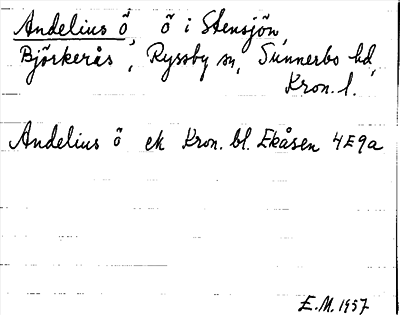 Andelius ö, ö i Stensjön,
Björkerås, Ryssby sn, Sunnerbo hd,
Kron. l.
Andelius ö ek Kron. bl. Ekåsen 4E9a
E.M. 1957